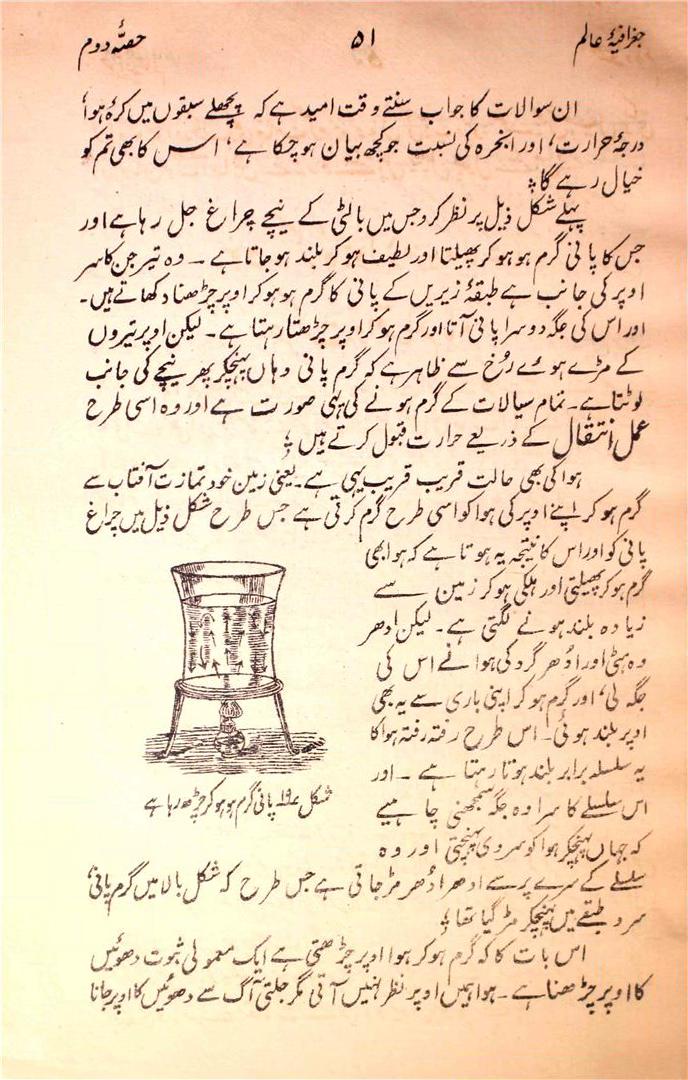 جغرافیۂ عالم
۵۱
حصّۂ دوم
ان سوالات کا جواب سنتے وقت امید ہے کہ پچھلے سبقوں میں کرۂ ہوا‘
درجۂ حرارت‘ اور ابخرہ کی نسبت جو کچھ بیان ہو چکا ہے‘ اس کا بھی تم کو
خیال رہے گا؛
پہلے شکل ذیل پر نظر کرو جس میں بالٹی کے نیچے چراغ جل رہا ہے اور
جس کا پانی گرم ہو ہو کر پھیلتا اور لطیف ہو کر بلند ہو جاتا ہے ۔ وہ تیر جن کا سر
اوپر کی جانب ہے طبقۂ زیریں کے پانی کا گرم ہو ہو کر اوپر چڑھنا دکھاتے ہیں۔
اور اس کی جگہ دوسرا پانی آتا اور گرم ہو کر اوپر چڑھتا رہتا ہے ۔ لیکن اوپر تیروں
کے مڑے ہوئے رُخ سے ظاہر ہے کہ گرم پانی وہاں پہنچکر پھر نیچے کی جانب
لوٹتا ہے ۔ تمام سیالات کے گرم ہونے کی یہی صورت ہے اور وہ اسی طرح
عمل انتقال کے ذریعے حرارت قبول کرتے ہیں ؛
ہوا کی بھی حالت قریب قریب یہی ہے ۔ یعنی زمین خود تمازت آفتاب سے
گرم ہو کر اپنے اوپر کی ہوا کو اسی طرح گرم کرتی ہے جس طرح شکل ذیل میں چراغ
پانی کو اور اس کا نتیجہ یہ ہوتا ہے کہ ہوا بھی
گرم ہو کر پھیلتی اور ہلکی ہو کر زمین سے
زیادہ بلند ہونے لگتی ہے ۔ لیکن ادھر
وہ ہٹی اور ادُھر گرد کی ہوا نے اس کی
جگہ لی‘ اور گرم ہو کر اپنی باری سے یہ بھی
اوپر بلند ہوئی ۔ اس طرح رفتہ رفتہ ہوا کا
یہ سلسلہ برابر بلند ہوتا رہتا ہے ۔ اور
اس سلسلے کا سرا وہ جگہ سمجھنی چاہیے
کہ جہاں پہنچکر ہوا کو سردی پہنچتی اور وہ
شکل ۱۹؎ پانی گرم ہو ہو کر چڑھ رہا ہے
سلسلے کے سرے پر سے ادھر ادُھر مڑ جاتی ہے جس طرح کہ شکل بالا میں گرم پانی‘
سرد طبقے میں پہنچکر مڑ گیا تھا؛
اس بات کا کہ گرم ہو کر ہوا اوپر چڑھتی ہے ایک معمولی ثبوت دھوئیں
کا اوپر چڑھنا ہے ۔ ہوا ہمیں اوپر نظر نہیں آتی مگر جلتی آگ سے دھوئیں کا اوپر جانا